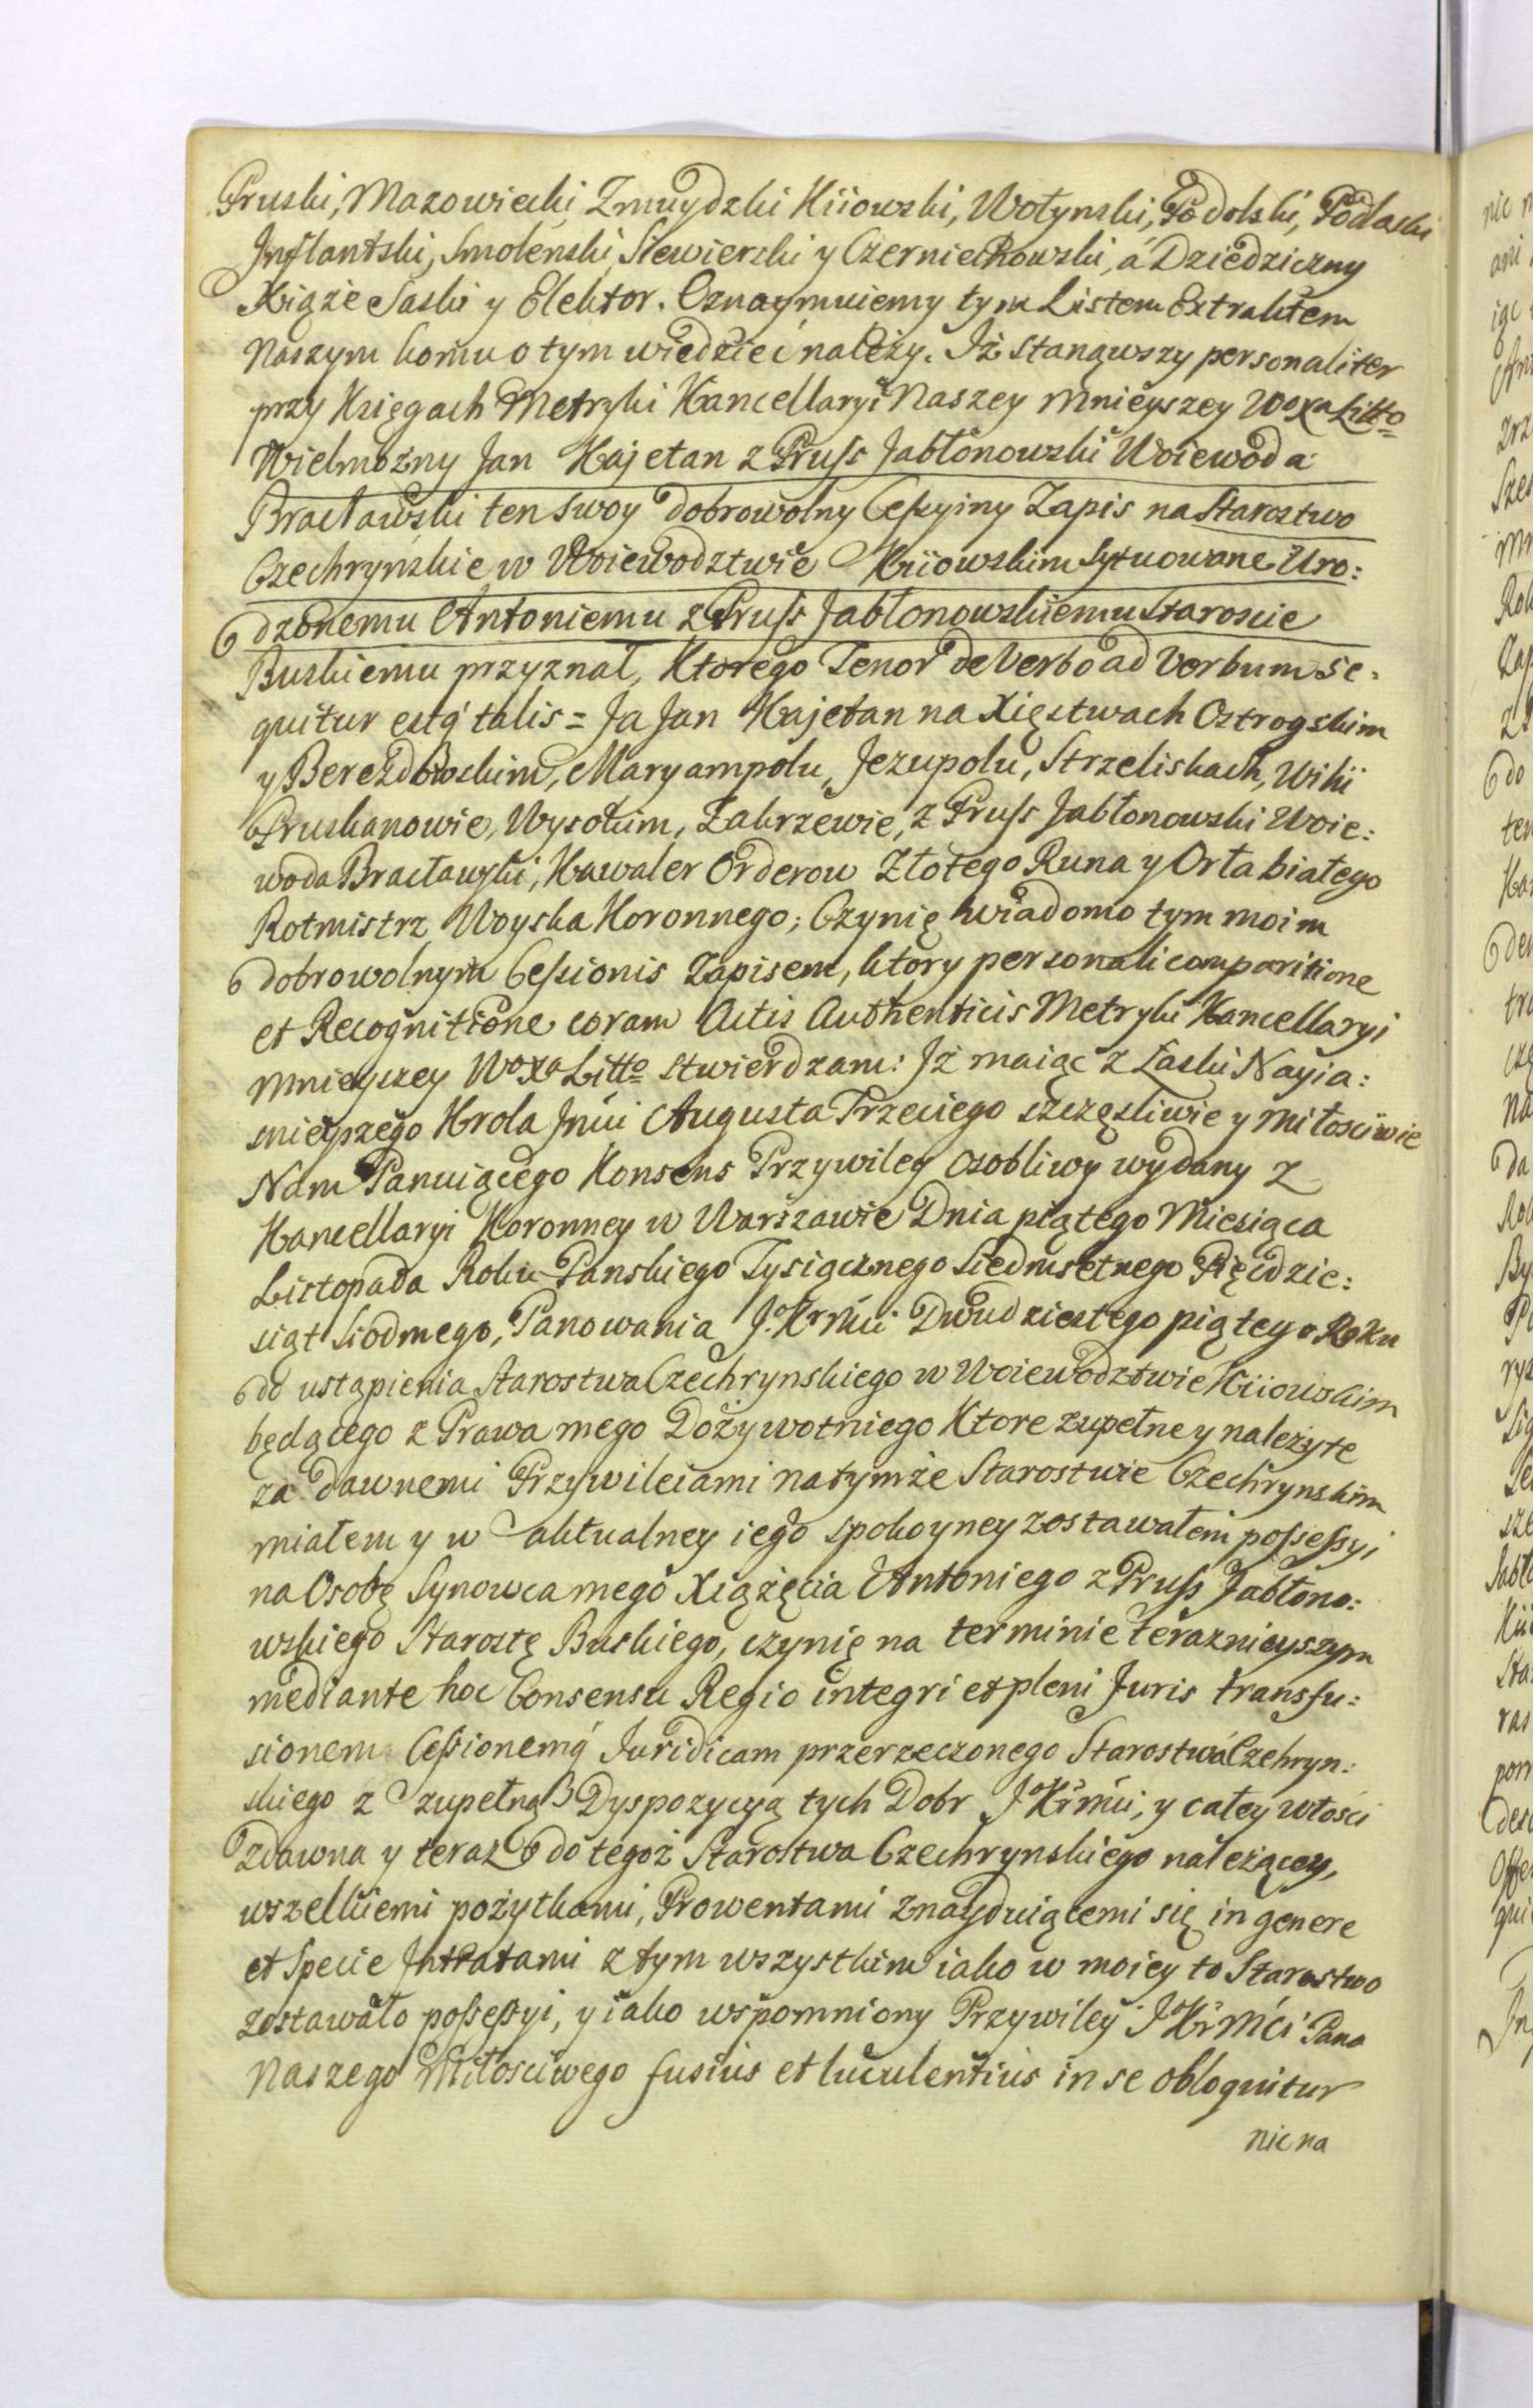 Pruski, Mazowiecki Zmuydzki Kiiowski, Wołynski, Podolski, Podlaski
Inflantski, Smolenski, Siewierski y Czerniechowski, á Dziedziczny
Xiąże Saski y Elektor. Oznaymuiemy tym Listem Extraktem
Naszym komu o tym wiedzieć należy. Iż stanąwszy personaliter
przy Księgach Metryki Kancellaryi Naszey Mnieyszey WoXa Litto
Wielmożny Jan Kajetan z Pruss Jabłonowski Woiewoda
Bracławski ten swoy dobrowolny Cessyiny Zapis na Starostwo
Czechrynskie w Woiewodztwie Kiiowskim Sytuowane Uro:
dzonemu Antoniemu z Pruss Jabłonowskiemu Staroscie
Buskiemu przyznał, Ktorego Tenor de Verbo ad Verbum se:
quitur estq́ talis = Ja Jan Kajetan na Xięstwach Ostrogskim
y Berezdowskim, Maryampolu, Jezupolu, Strzeliskach, Wikii
Pruskanowie, Wysokim, Zakrzewie, z Pruss Jabłonowski Woie:
woda Bracławski, Kawaler Orderow Złotego Runa y Orła białego
Rotmistrz Woyska Koronnego; Czynię wiadomo tym moim
dobrowolnym Cessionis Zapisem, ktory personali comparitione
et Recognitione coram Actis Authenticis Metryki Kancellaryi
Mnieyszey WoXa Litto stwierdzam: Iż maiąc z Łaski Nayia:
snieyszego Krola Jmći Augusta Trzeciego szczęsliwie y Miłosciwie
Nam Panuiącego Konsens Przywiley Osobliwy wydany z
Kancellaryi Koronney w Warszawie Dnia piątego Miesiąca
Listopada Roku Panskiego Tysiącznego Siedmsetnego Pięćdzie:
siąt Siodmego, Panowania J.KrMći Dwudziestego piątego Roku
do ustąpienia Starostwa Czechrynskiego w Woiewodztwie Kiiowskim
będącego z Prawa mego Dożywotniego Ktore zupełne y należyte
za dawnemi Przywileiami na tymże Starostwie Czechrynskim
miałem y w aktualney iego spokoyney zostawałem possessyi
na Osobę Synowca mego Xiążęcia Antoniego z Pruss Jabłono:
wskiego Starostę Buskiego, czynię na terminie teraznieyszym
mediante hoc Consensu Regio integri et pleni Juris transfu:
sionem Cessionemq́ Juridicam przerzeczonego Starostwa Czehryn:
skiego z zupełną Dyspozycyą tych Dobr JKrmći, y całey włosci
zdawna y teraz do tegoż Starostwa Czechrynskiego należącey,
wszelkiemi pożytkami, Prowentami znayduiącemi się in genere
et Specie Intratami z tym wszystkim iako w moiey to Starostwo
zostawało possessyi, y iako wspomniony Przywiley JKrMći Pana
Naszego Miłosciwego fusius et luculentius in se obloquitur
nic na